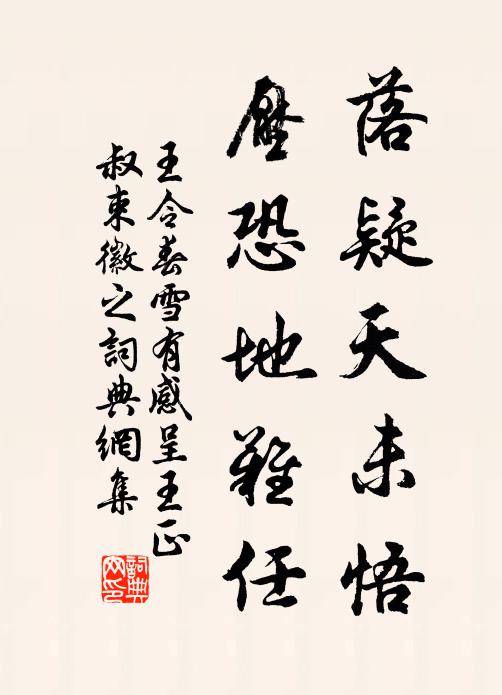 落疑天未悟
壓恐地難任
王令春雪有感呈王正
叔束徽之詞典網集
詞典网印